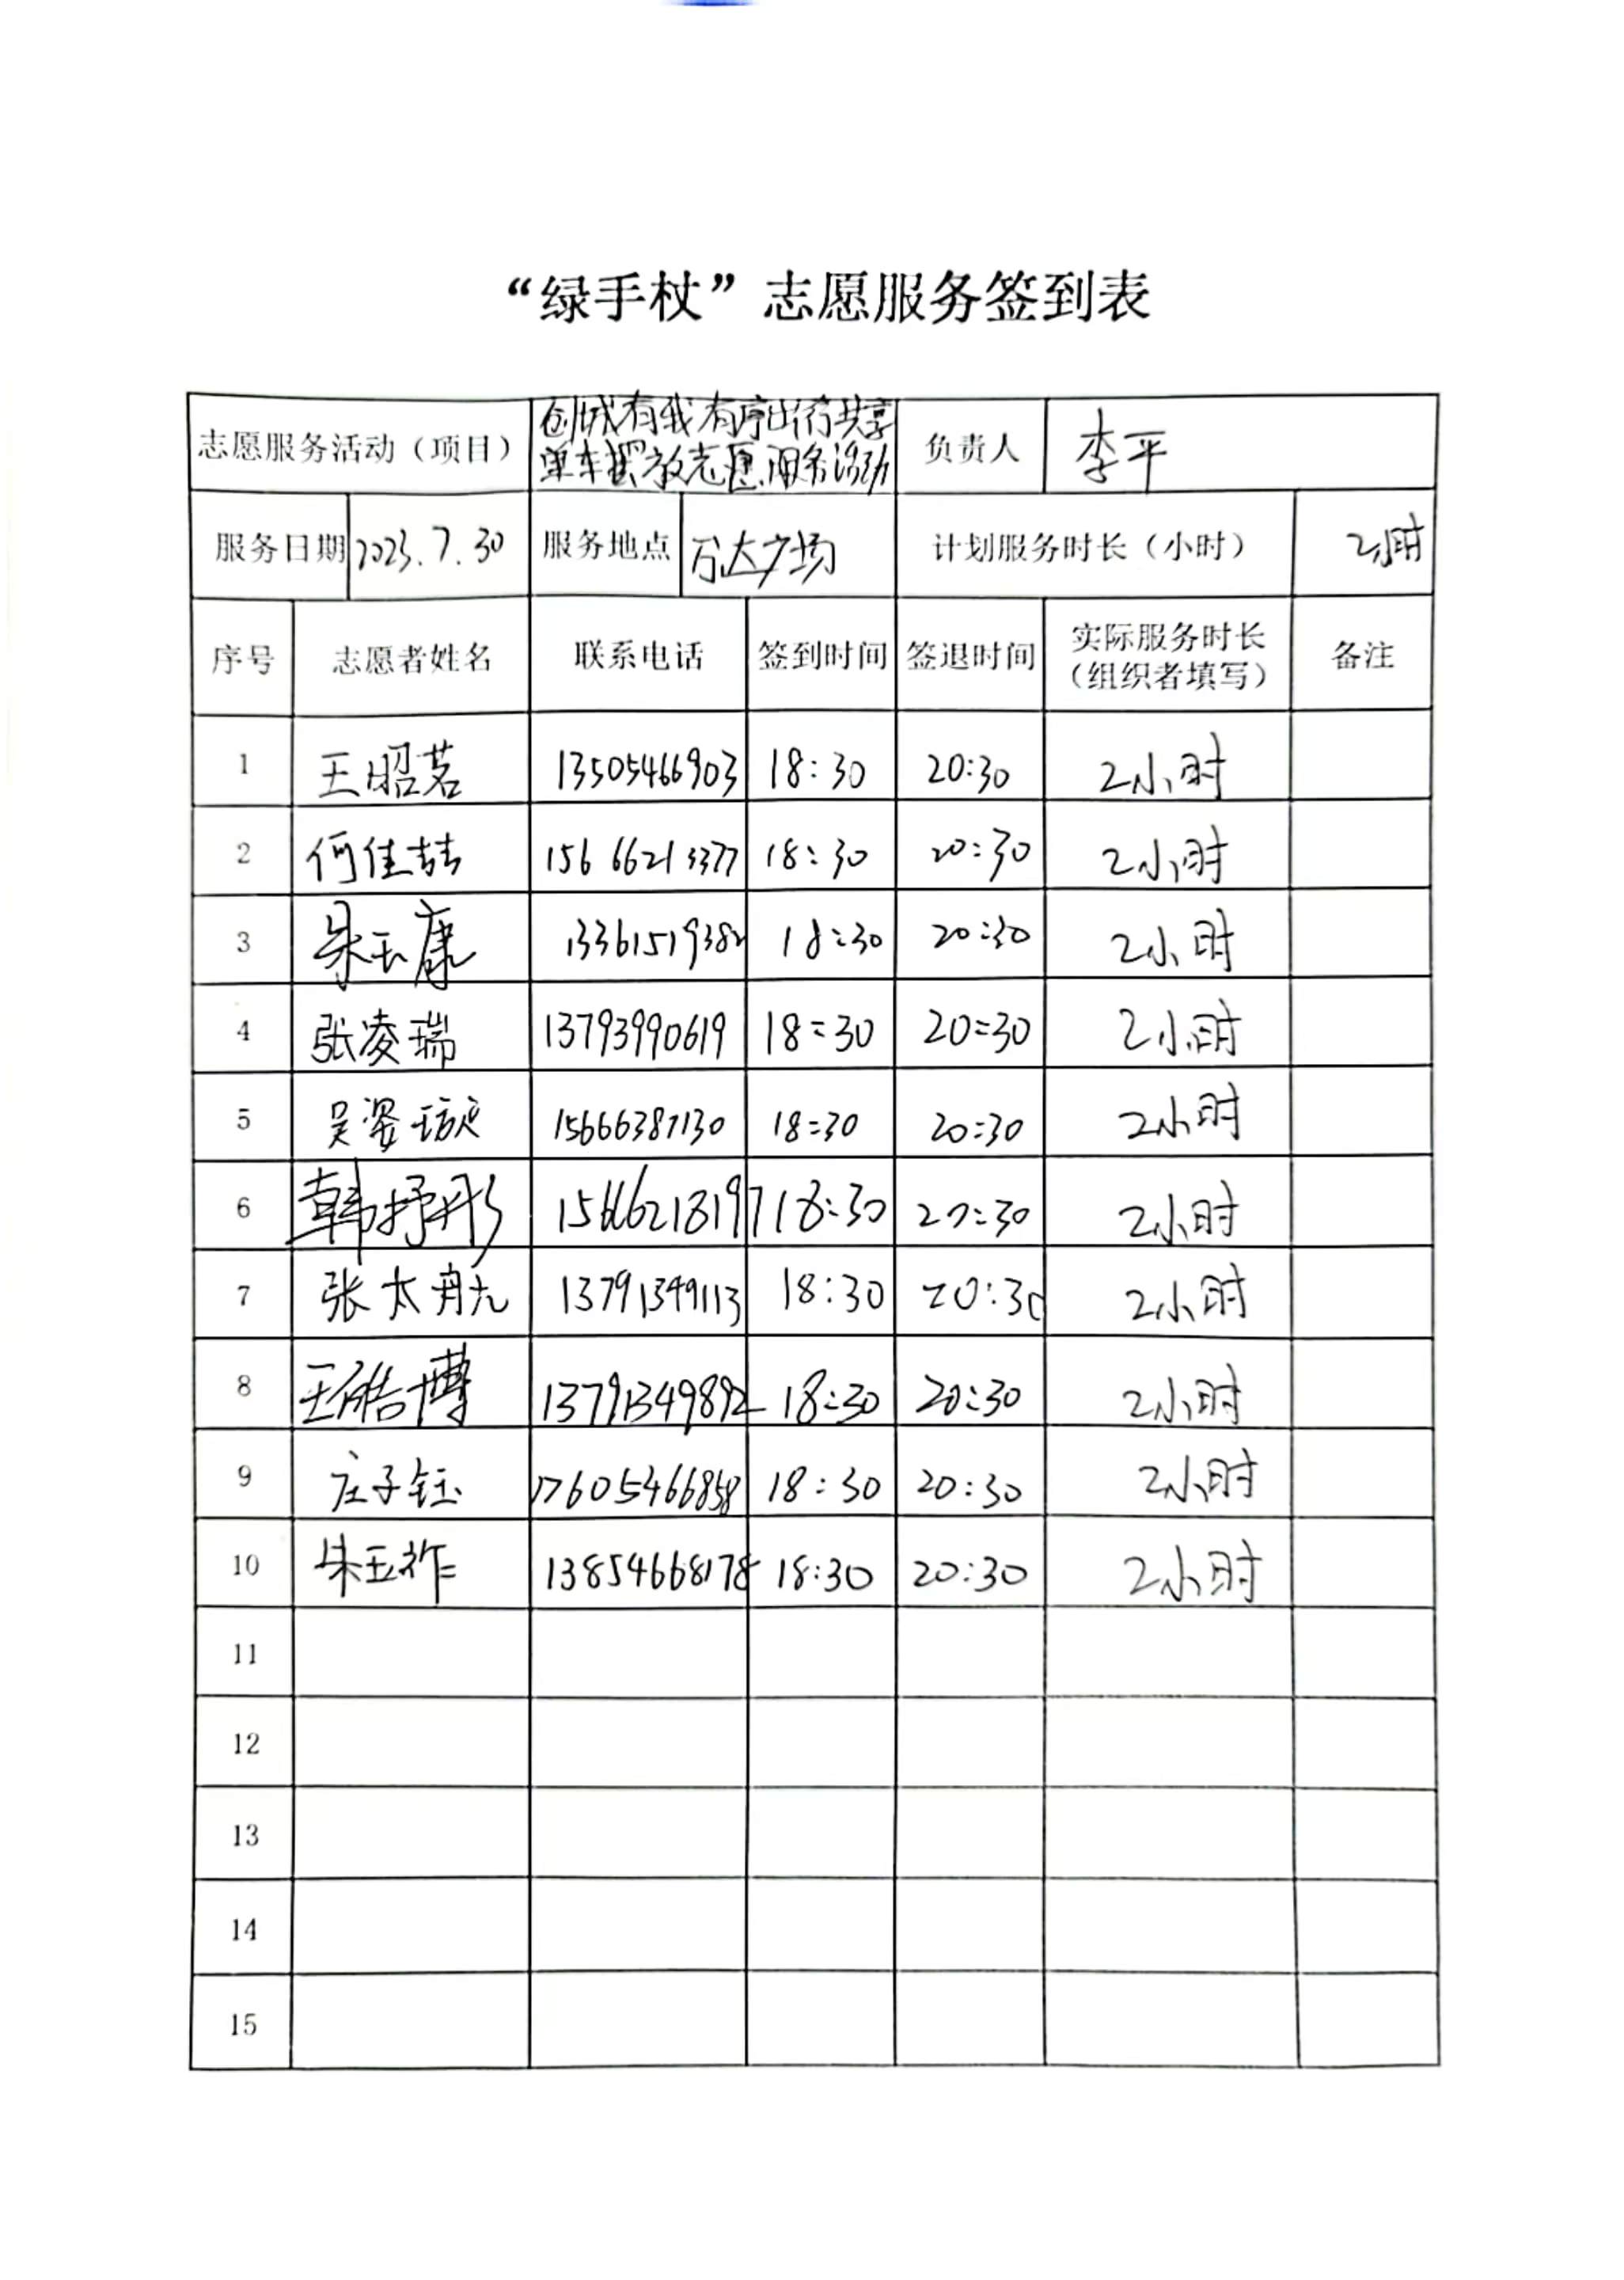 “绿手杖”志愿服务签到表
志愿服务活动（项目） 创城有我有序出行共享 负责人 李平
单车摆放志愿服务活动
服务日期 2023.7.30 服务地点 万达广场 计划服务时长（小时） 2小时
序号 志愿者姓名 联系电话 签到时间 签退时间 实际服务时长 备注
（组织者填写）
1 王昭茗 13505466903 18:30 20:30 2小时
2 何佳喆 15666213377 18:30 20:30 2小时
3 朱玉康 13361519382 18:30 20:30 2小时
4 张凌瑞 13793990619 18:30 20:30 2小时
5 吴姿璇 15666387130 18:30 20:30 2小时
6 韩抒彤 15666218197 18:30 20:30 2小时
7 张太航 13791349113 18:30 20:30 2小时
8 王皓博 13791349892 18:30 20:30 2小时
9 庄子钰 17605466858 18:30 20:30 2小时
10 朱玉祚 13854668178 18:30 20:30 2小时
11
12
13
14
15